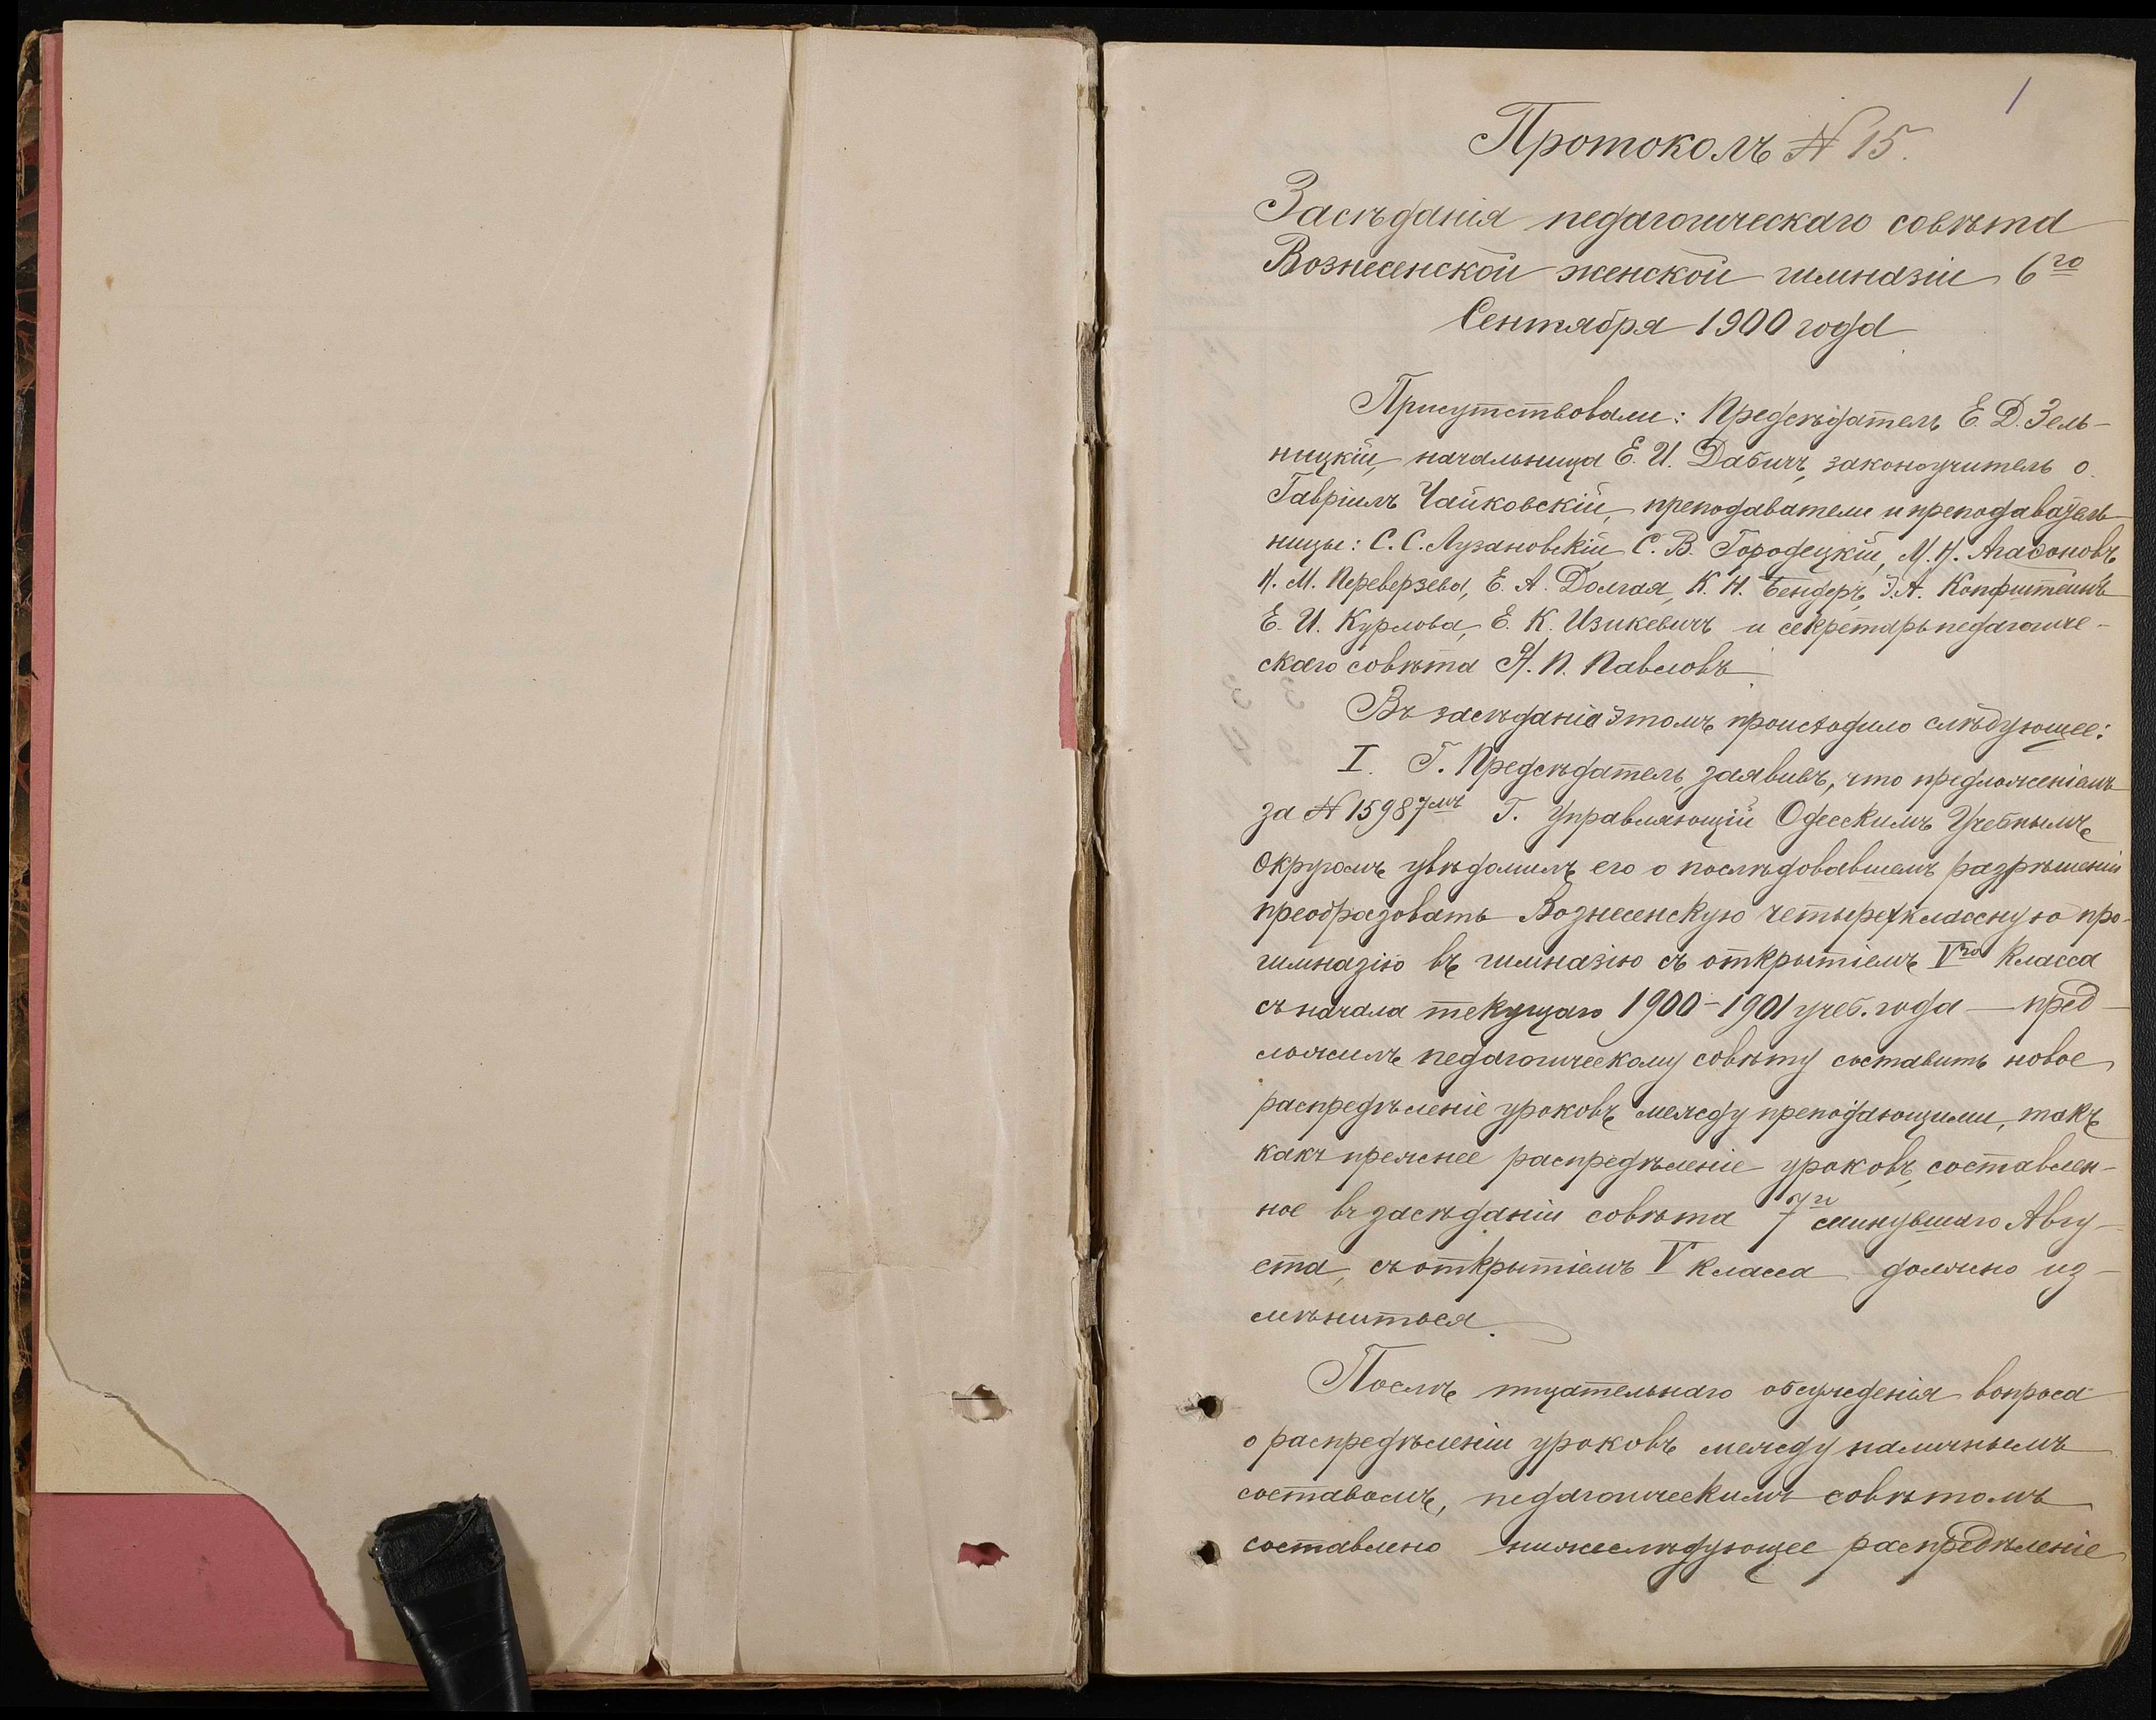 1
Протоколъ № 15.
Засѣданія педагогическаго совѣта
Вознесенской женской гимназіи 6го
Сентября 1900 года
Присутствовали: Предсѣдатель Е. Д. Зель-
ницкій, начальница Е. И. Дабичъ, законоучитель о.
Гавріилъ Чайковскій, преподаватели и преподаватель-
ницы: С. С. Лузановскій, С. В. Городецкій, М. Н. Агафоновъ,
Н. М. Переверзева, Е. А. Долгая, К. Н. Бендеръ, Э. А. Копфштейнъ
Е. И. Курлова, Е. К. Изикевичъ и секретарь педагогиче-
скаго совѣта Н. П. Павловъ
Въ засѣданіи этомъ происходило слѣдующее:
I. Г. Предсѣдатель, заявивъ, что предложеніемъ
за № 15987мъ Г. Управляющій Одесскимъ Учебнымъ
Округомъ увѣдомилъ его о послѣдовавшемъ разрѣшеніи
преобразовать Вознесенскую четырехклассную про-
гимназію въ гимназію съ открытіемъ Vго класса
съ начала текущаго 1900-1901 учеб. года — пред-
ложилъ педагогическому совѣту составить новое
распредѣленіе уроковъ между преподающими, такъ
какъ прежнее распредѣленіе уроковъ, составлен-
ное въ засѣданіи совѣта 7го минувшаго Авгу-
ста, съ открытіемъ V класса должно из-
мѣниться.
Послѣ тщательнаго обсужденія вопроса
о распредѣленіи уроковъ между наличнымъ
составомъ, педагогическимъ совѣтомъ
составлено нижеслѣдующее распредѣленіе